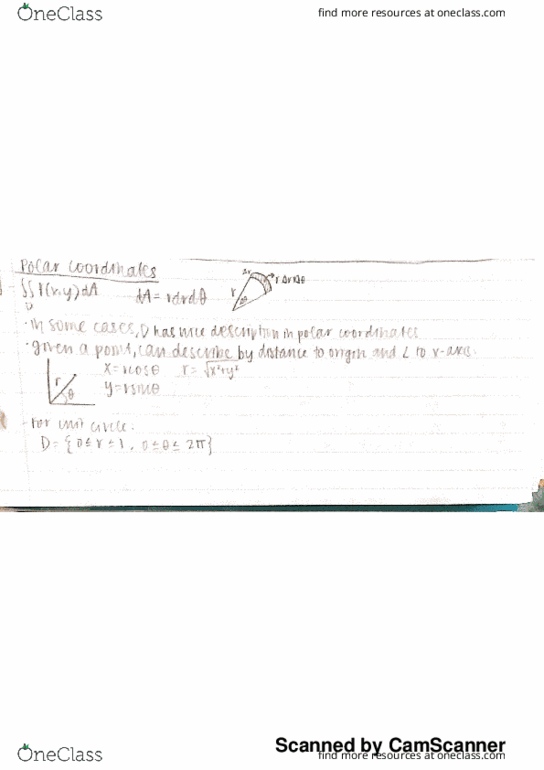 OneClass
find more resources at oneclass.com
Polar coordinates
∬ f(x,y)dA dA = rdrdθ
D
Δr r ΔrΔθ
r
Δθ
· In some cases, D has nice description in polar coordinates
· given a point, can describe by distance to origin and ∠ to x-axis.
x=rcosθ r=√x²+y²
y=rsinθ
r
θ
- For unit circle:
D = {0 ≤ r ≤ 1, 0 ≤ θ ≤ 2π}
Scanned by CamScanner
OneClass
find more resources at oneclass.com